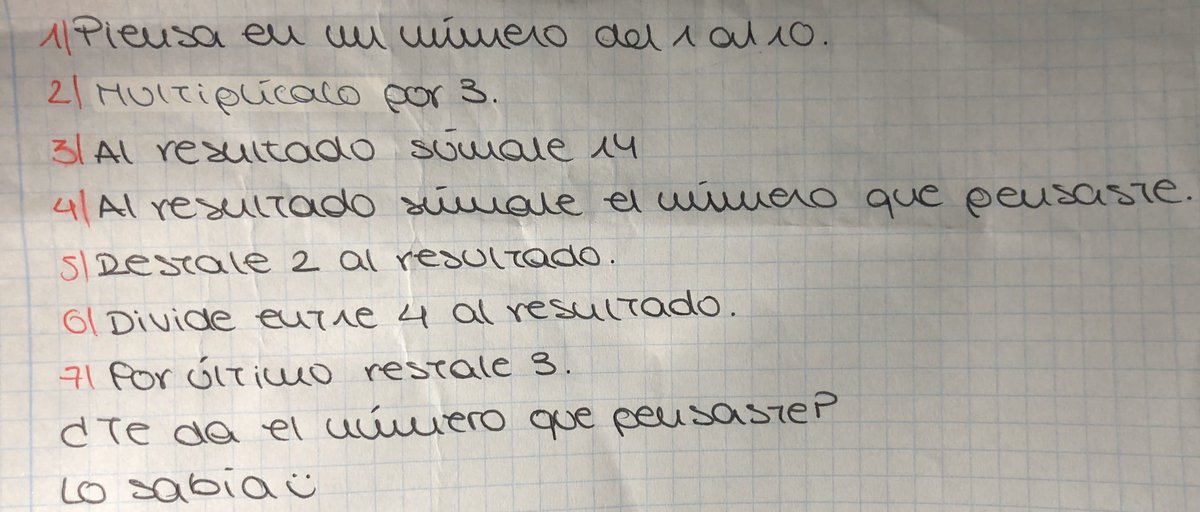 1) Piensa en un número del 1 al 10.
2) Multiplícalo por 3.
3) Al resultado súmale 14
4) Al resultado súmale el número que pensaste.
5) Restale 2 al resultado.
6) Divide entre 4 al resultado.
7) Por último restale 3.
¿Te da el número que pensaste?
Lo sabia :)